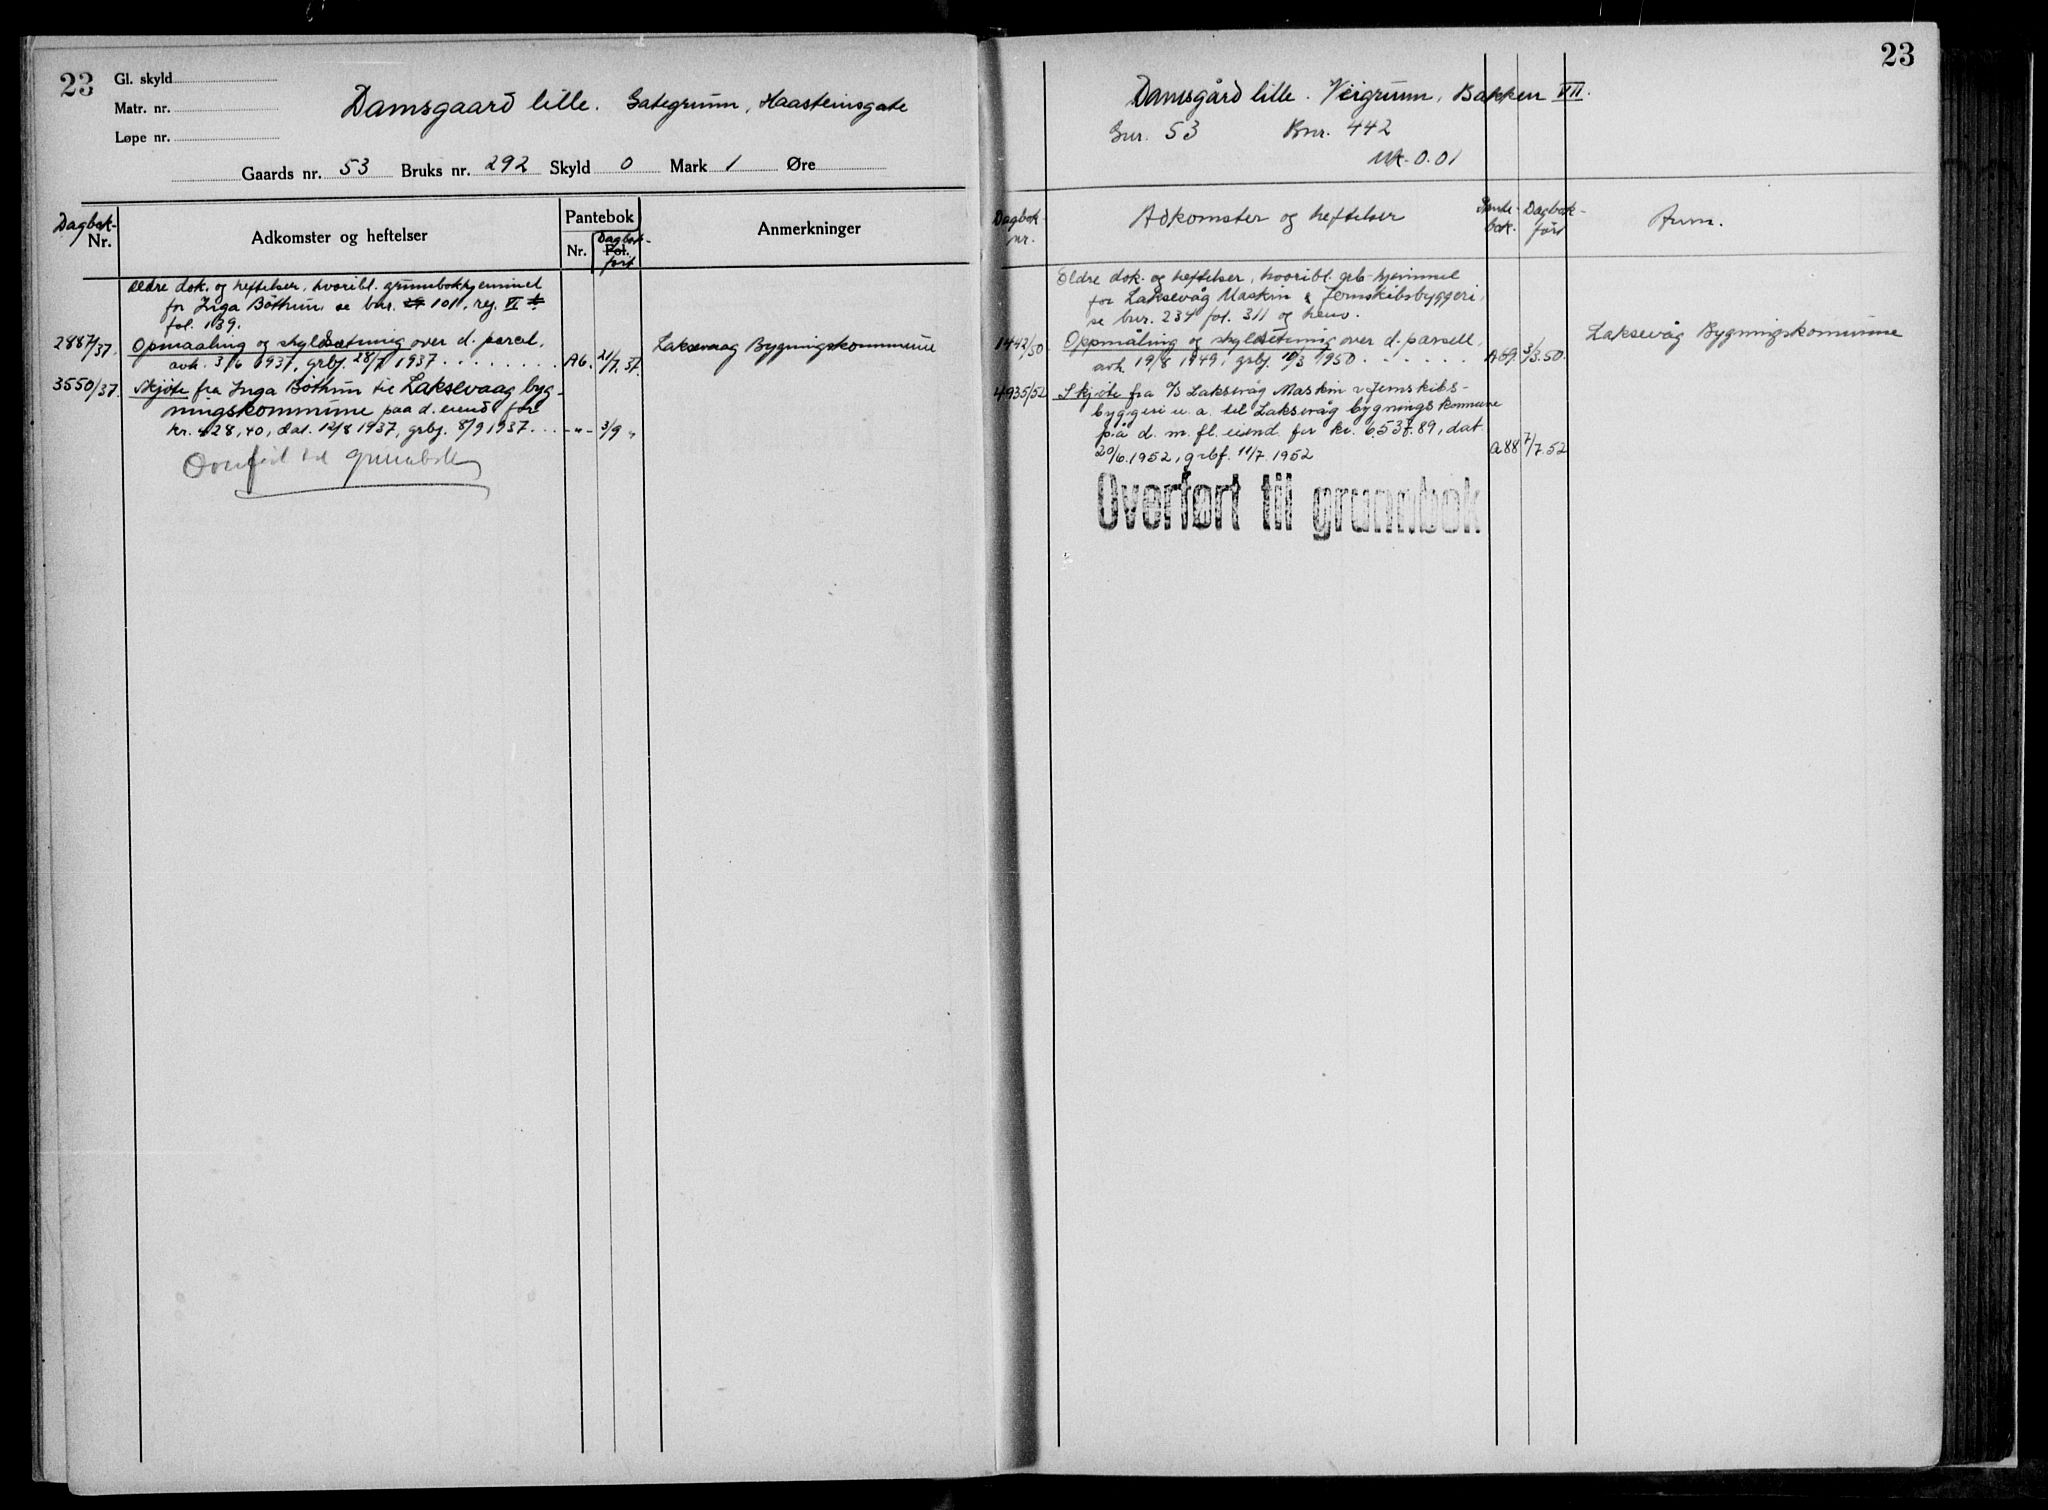 23
Gl. skyld
Matr. nr.
Løpe nr.
Damsgaard lille. Gategrunn, Haasteinsgate
Gaards nr. 53 Bruks nr. 292 Skyld 0 Mark 1 Øre
Dagbok-
Nr.
Adkomster og heftelser
Pantebok
Nr.
Dagbok-
Fol.
ført
Anmerkninger
Ældre dok. og heftelser, hvoribl. grunnbokhjemmel
for Inga Bøthun se bnr. 101, rej. VI
fol. 139.
2887/37. Opmaaling og skyldsætning over d. parcel,
avh. 3/6 1937, grbj. 28/7 1937 . . . . . . . . A6. 21/7.37.
Laksevaag Bygningskommune
3550/37. Skjøte fra Inga Bøthun til Laksevaag byg-
ningskommune paa d. eiend. for
kr. 428,40, dat. 12/8 1937, grbj. 8/9 1937. . . -"- 3/9 "
Overført til grunnbok
23
Damsgård lille. Veigrunn, Bakken VII.
Gnr. 53 Bnr. 442
Mk. 0.01
Dagbok-
nr.
Adkomster og heftelser
Pante-
bok.
Dagbok-
ført
Anm.
Eldre dok. og heftelser, hvoribl. grb-hjemmel
for Laksevåg Maskin & Jernskibsbyggeri,
se bnr. 234 fol. 311 og henv.
1442/50 Oppmåling og skyldsetning over d. parsell,
avh. 19/8 1949, grbj. 10/3 1950 . . . . . . A69. 3/3.50.
Laksevåg Bygningskommune
4935/52 Skjøte fra A/S Laksevåg Maskin & Jernskibs-
byggeri u. a. til Laksevåg bygningskommune
på d. m. fl. eiend. for kr. 6.537.89, dat.
20/6.1952, grbf. 11/7.1952 A88 7/7.52
Overført til grunnbok